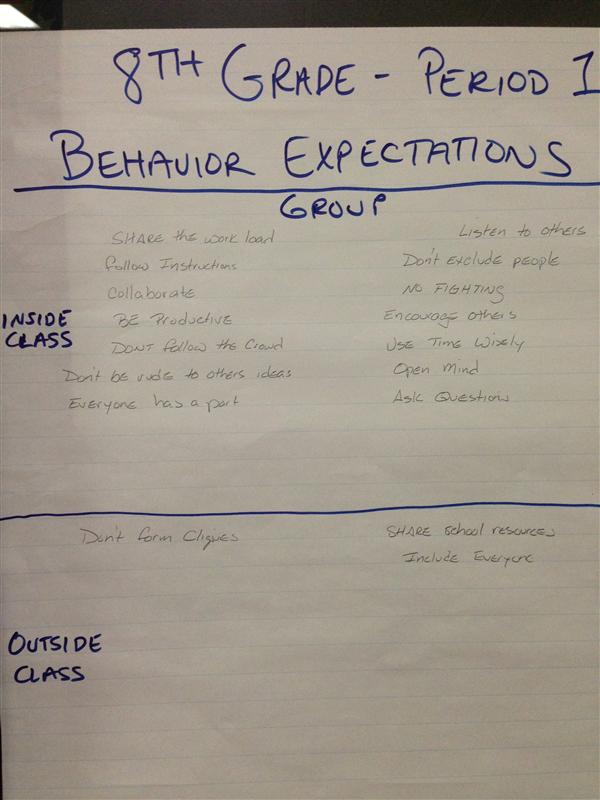 8TH GRADE - PERIOD 1
BEHAVIOR EXPECTATIONS
GROUP
SHARE the work load
Listen to others
follow Instructions
Don't exclude people
Collaborate
NO FIGHTING
INSIDE CLASS
BE Productive
Encourage others
DONT follow the Crowd
USE Time Wisely
Don't be rude to others ideas
Open Mind
Everyone has a part
Ask Questions
Don't form Cliques
SHARE school resources
Include Everyone
OUTSIDE
CLASS